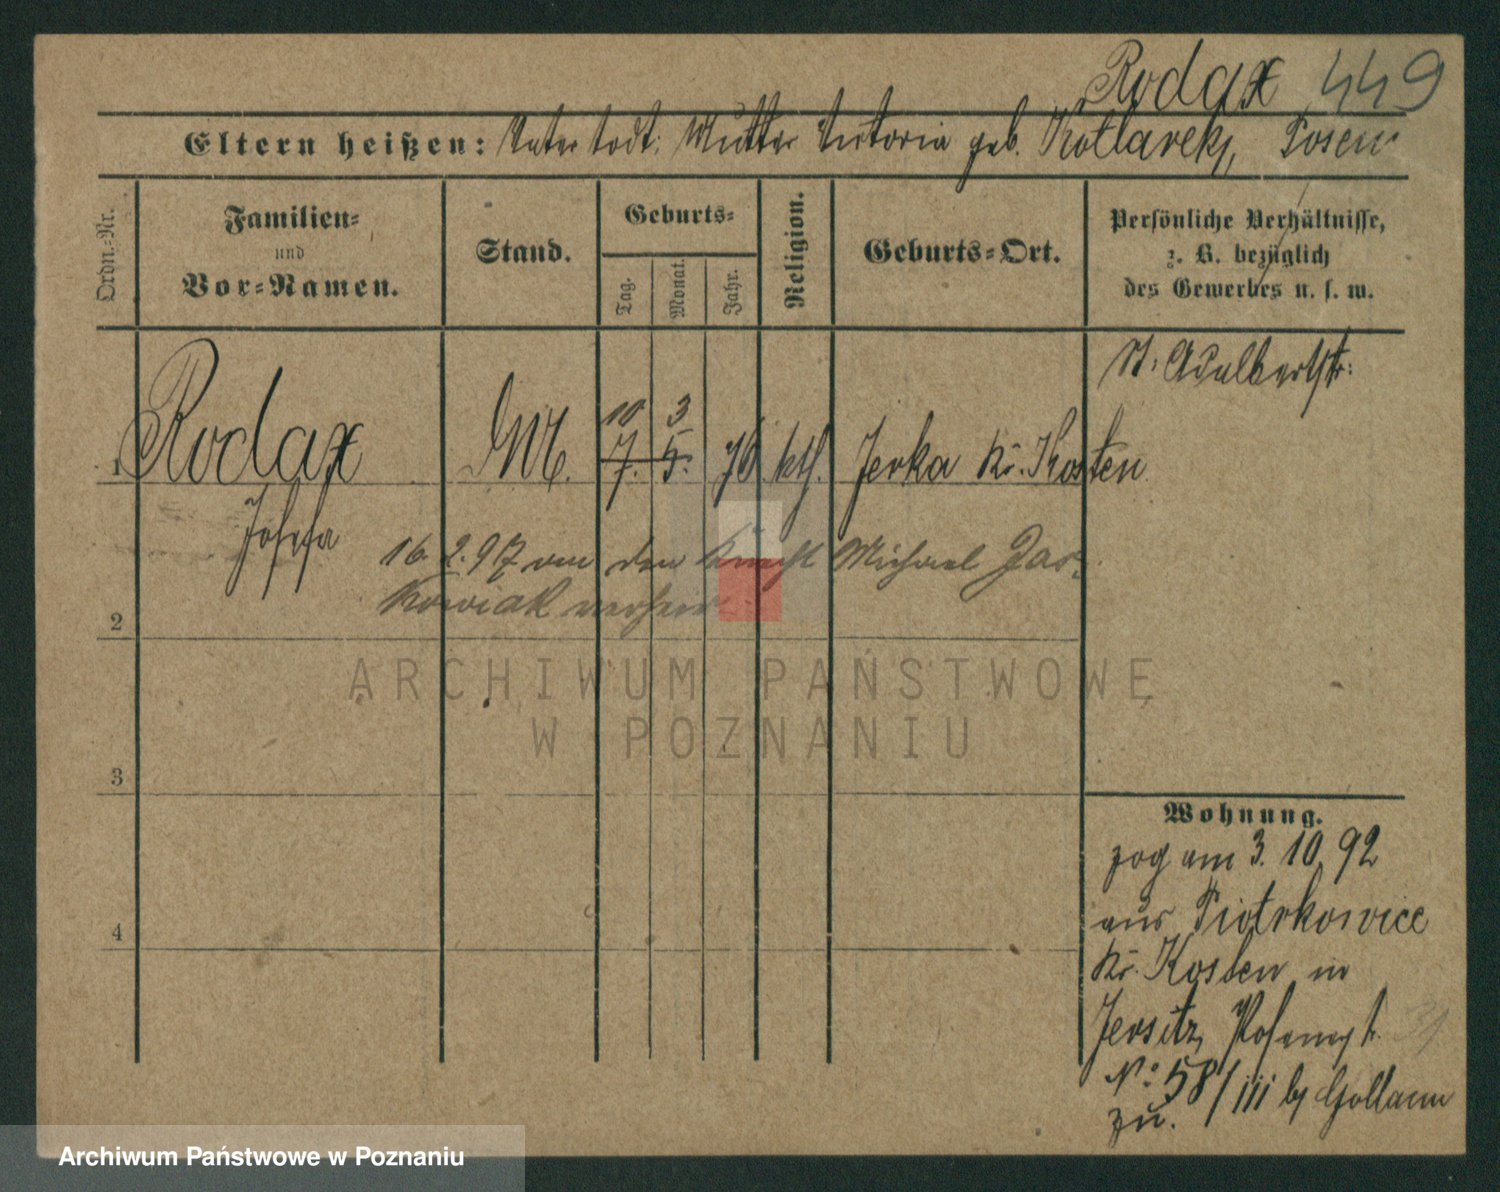 Rodax 449
Eltern heißen: Vater todt. Mutter Victoria geb. Kotlarek, Posen
Ordn.-Nr.
Familien-
und
Vor-Namen.
Stand.
Geburts-
Tag.
Monat.
Jahr.
Religion.
Geburts-Ort.
Persönliche Verhältnisse,
z. B. bezüglich
des Gewerbes u. s. w.
St. Adalbertstr.
10 3
1 Rodax 7. 5. 76 kth. Jerka Kr. Kosten
Josefa
16. 2. 97 an den Knecht Michael Jas-
kowiak verheir.
2
3
4
Wohnung.
zog am 3. 10. 92
aus Piotrkowice
Kr. Kosten in
Jersitz,
No 58/III b/ Gollann
zu.
ARCHIWUM PAŃSTWOWE
W POZNANIU
Archiwum Państwowe w Poznaniu